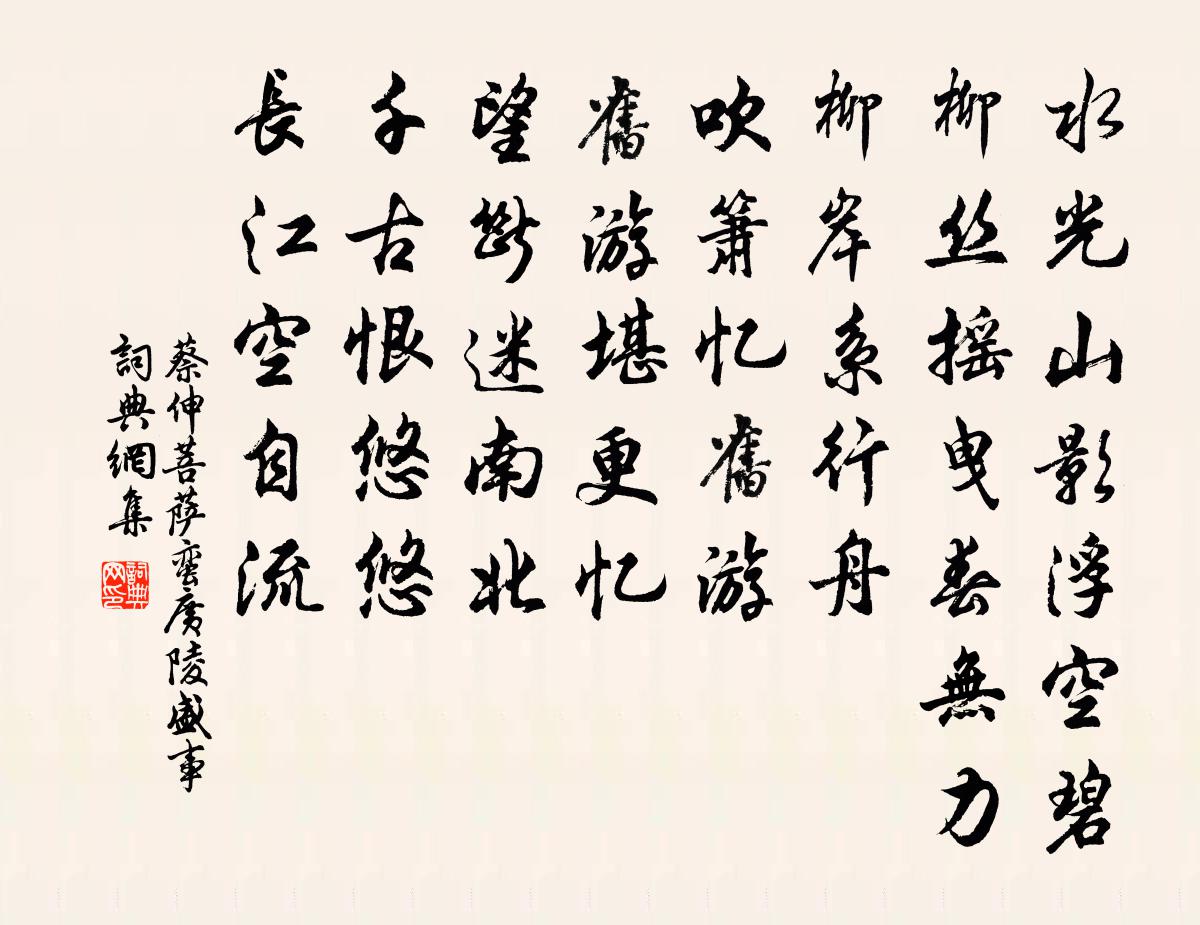 水光山影浮空碧
柳丝摇曳春無力
柳岸系行舟
吹簫忆舊游
舊游堪更忆
望断迷南北
千古恨悠悠
長江空自流
蔡伸菩萨蛮廣陵盛事
詞典網集
詞典网印